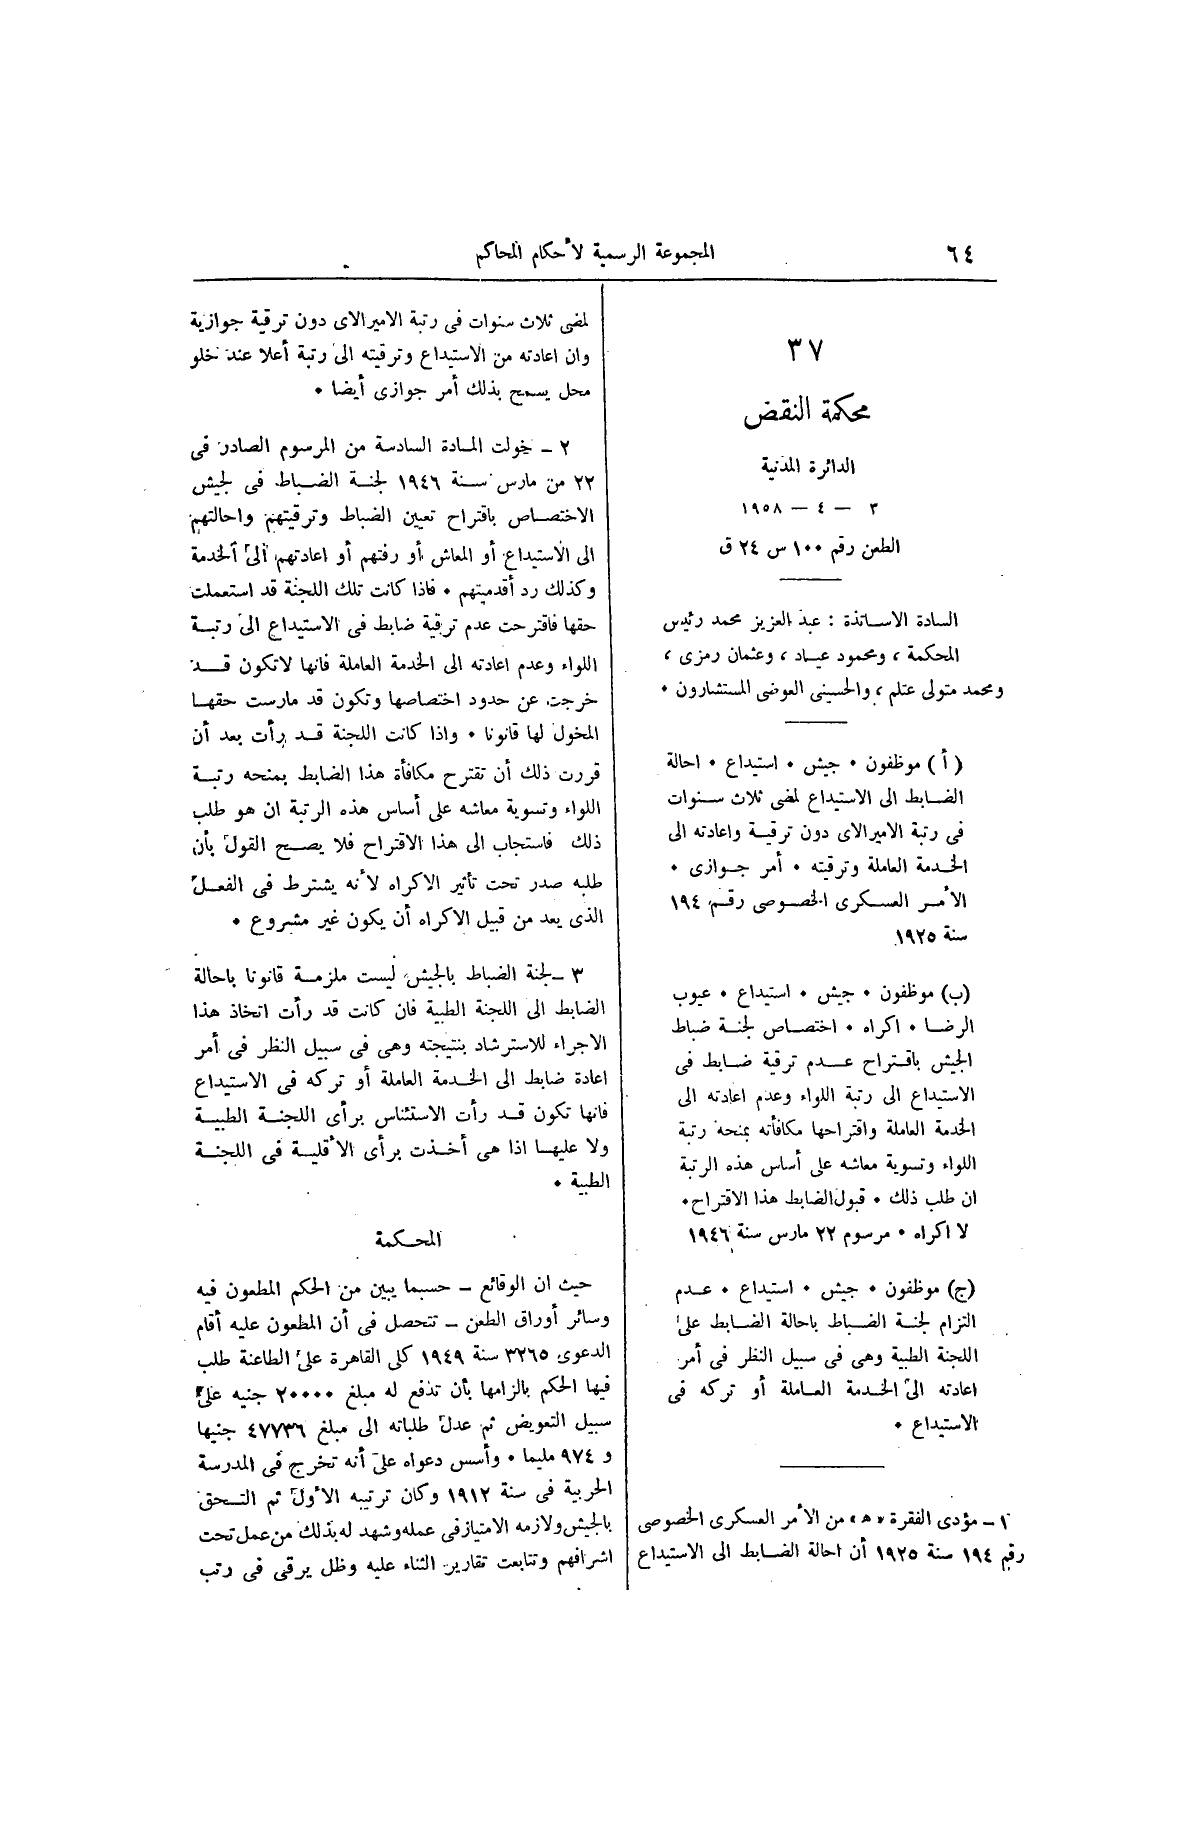 ٦٤
المجموعة الرسمية لأحكام المحاكم
٣٧
محكمة النقض
الدائرة المدنية
٣ – ٤ – ١٩٥٨
الطعن رقم ١٠٠ س ٢٤ ق
السادة الاساتذة : عبد العزيز محمد رئيس
المحكمة ، ومحمود عياد ، وعثمان رمزى ،
ومحمد متولى عتلم ، والحسينى العوضى المستشارون •
( أ ) موظفون • جيش • استيداع • احالة
الضابط الى الاستيداع لمضى ثلاث سنوات
فى رتبة الاميرالاى دون ترقية واعادته الى
الخدمة العاملة وترقيته • أمر جوازى •
الأمر العسكرى الخصوصى رقم ١٩٤
سنة ١٩٢٥
(ب) موظفون • جيش • استيداع • عيوب
الرضا • اكراه • اختصاص لجنة ضباط
الجيش باقتراح عدم ترقية ضابط فى
الاستيداع الى رتبة اللواء وعدم اعادته الى
الخدمة العاملة واقتراحها مكافأته بمنحه رتبة
اللواء وتسوية معاشه على أساس هذه الرتبة
ان طلب ذلك • قبول الضابط هذا الاقتراح •
لا اكراه • مرسوم ٢٢ مارس سنة ١٩٤٦
(ج) موظفون • جيش • استيداع • عدم
التزام لجنة الضباط باحالة الضابط على
اللجنة الطبية وهى فى سبيل النظر فى أمر
اعادته الى الخدمة العاملة أو تركه فى
الاستيداع •
١ – مؤدى الفقرة «ه» من الأمر العسكرى الخصوصى
رقم ١٩٤ سنة ١٩٢٥ أن احالة الضابط الى الاستيداع
لمضى ثلاث سنوات فى رتبة الاميرالاى دون ترقية جوازية
وان اعادته من الاستيداع وترقيته الى رتبة أعلا عند خلو
محل يسمح بذلك أمر جوازى أيضا •
٢ – خولت المادة السادسة من المرسوم الصادر فى
٢٢ من مارس سنة ١٩٤٦ لجنة الضباط فى لجيش
الاختصاص باقتراح تعيين الضباط وترقيتهم واحالتهم
الى الاستيداع أو المعاش أو رفتهم أو اعادتهم الى الخدمة
وكذلك رد أقدميتهم • فاذا كانت تلك اللجنة قد استعملت
حقها فاقترحت عدم ترقية ضابط فى الاستيداع الى رتبة
اللواء وعدم اعادته الى الخدمة العاملة فانها لاتكون قد
خرجت عن حدود اختصاصها وتكون قد مارست حقها
المخول لها قانونا • واذا كانت اللجنة قد رأت بعد أن
قررت ذلك أن تقترح مكافأة هذا الضابط بمنحه رتبة
اللواء وتسوية معاشه على أساس هذه الرتبة ان هو طلب
ذلك فاستجاب الى هذا الاقتراح فلا يصح القول بأن
طلبه صدر تحت تأثير الاكراه لأنه يشترط فى الفعل
الذى يعد من قبيل الاكراه أن يكون غير مشروع •
٣ – لجنة الضباط بالجيش ليست ملزمة قانونا باحالة
الضابط الى اللجنة الطبية فان كانت قد رأت اتخاذ هذا
الاجراء للاسترشاد بنتيجته وهى فى سبيل النظر فى أمر
اعادة ضابط الى الخدمة العاملة أو تركه فى الاستيداع
فانها تكون قد رأت الاستئناس برأى اللجنة الطبية
ولا عليها اذا هى أخذت برأى الأقلية فى اللجنة
الطبية •
المحكمة
حيث ان الوقائع – حسبما يبين من الحكم المطعون فيه
وسائر أوراق الطعن – تتحصل فى أن المطعون عليه أقام
الدعوى ٣٢٦٥ سنة ١٩٤٩ كلى القاهرة على الطاعنة طلب
فيها الحكم بالزامها بأن تدفع له مبلغ ٢٠٠٠٠ جنيه على
سبيل التعويض ثم عدل طلباته الى مبلغ ٤٧٧٣٦ جنيها
و ٩٧٤ مليما • وأسس دعواه على أنه تخرج فى المدرسة
الحربية فى سنة ١٩١٢ وكان ترتيبه الأول ثم التحق
بالجيش ولازمه الامتياز فى عمله وشهد له بذلك من عمل تحت
اشرافهم وتتابعت تقارير الثناء عليه وظل يرقى فى رتب